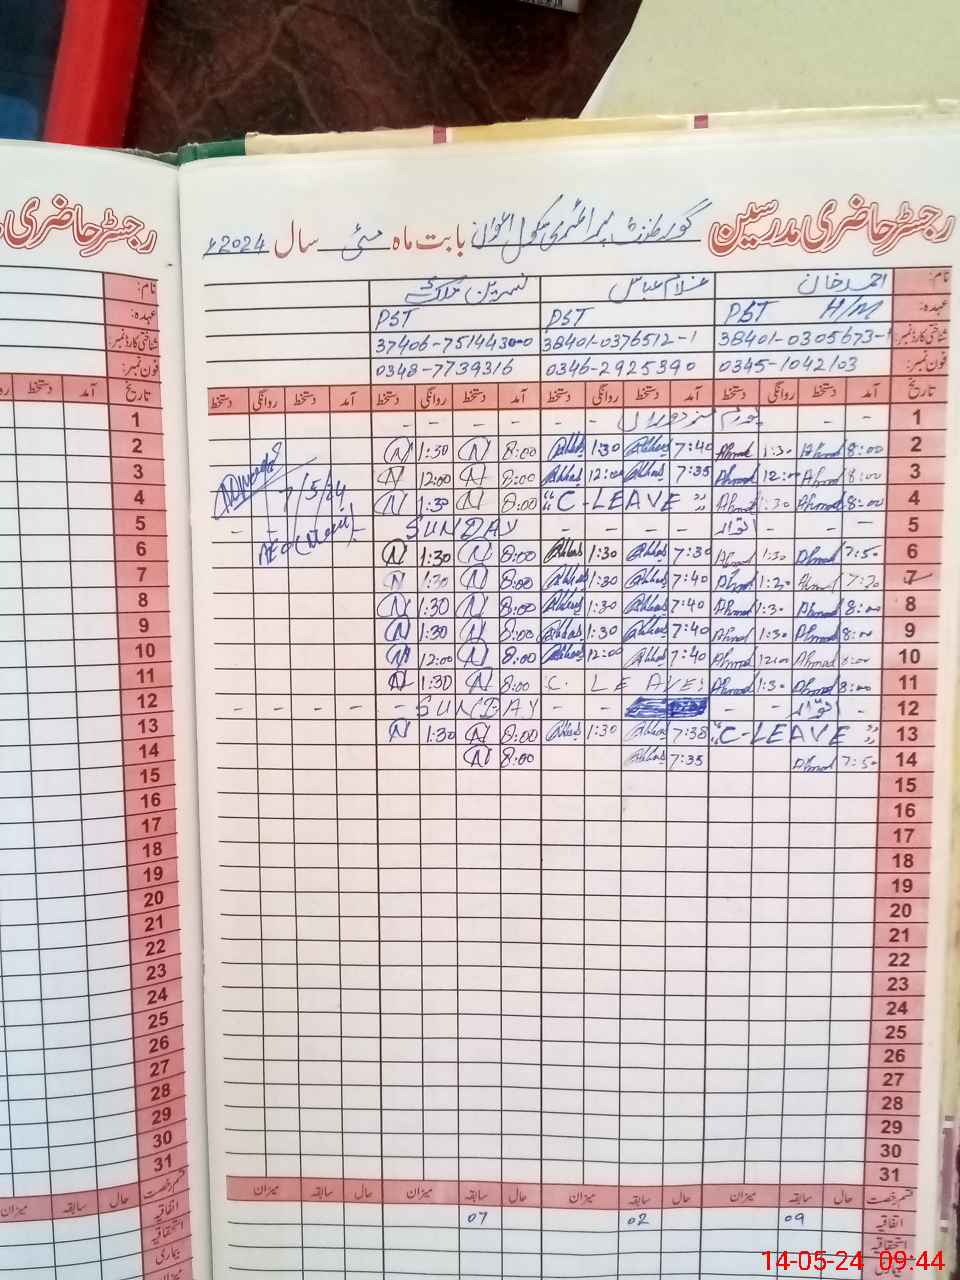 رجسٹر حاضری مدرسین گورنمنٹ پرائمری سکول اعوان بابت ماہ مئی سال 2024ء
رجسٹر حاضری
نام: احمد خان غلام عباس نسرین
عہدہ: PST H/M PST PST
شناختی کارڈ نمبر: 38401-0305673-1 38401-0376512-1
فون نمبر: 0345-1042103 0346-2925390 0348-7739316
تاریخ آمد دستخط روانگی دستخط آمد دستخط روانگی دستخط آمد دستخط روانگی دستخط آمد دستخط روانگی دستخط
1 - -
2 8:00 Ahmad 1:30 Ahmad 7:40 Abbas 1:30 Abbas 8:00 N 1:30 N
3 8:00 Ahmad 12:00 Ahmad 7:35 Abbas 12:00 Abbas 8:00 N 12:00 N
4 8:00 Ahmad 1:30 Ahmad "C-LEAVE" 8:00 N 1:30 N
7/5/24
5 - - اتوار - - - SUNDAY - -
6 7:50 Ahmad 1:30 Ahmad 7:30 Abbas 1:30 Abbas 8:00 N 1:30 N
7 Ahmad Ahmad 7:40 Abbas 1:30 Abbas 8:00 N 1:30 N
8 8:00 Ahmad 1:30 Ahmad 7:40 Abbas 1:30 Abbas 8:00 N 1:30 N
9 8:00 Ahmad 1:30 Ahmad 7:40 Abbas 1:30 Abbas 8:00 N 1:30 N
10 8:00 Ahmad 12:00 Ahmad 7:40 Abbas 12:00 Abbas 8:00 N 12:00 N
11 8:00 Ahmad 1:30 Ahmad C. LEAVE 8:00 N 1:30 N
12 - اتوار - - - - SUNDAY - - - -
13 "C-LEAVE" 7:38 Abbas 1:30 Abbas 8:00 N 1:30 N
14 7:50 Ahmad 7:35 Abbas 8:00 N
15
16
17
18
19
20
21
22
23
24
25
26
27
28
29
30
31
قسم رخصت حال سابقہ میزان حال سابقہ میزان حال سابقہ میزان حال سابقہ میزان
اتفاقیہ 09 02 07
استحقاقیہ
تاریخ آمد دستخط
1
2
3
4
5
6
7
8
9
10
11
12
13
14
15
16
17
18
19
20
21
22
23
24
25
26
27
28
29
30
31
قسم رخصت حال سابقہ میزان
اتفاقیہ
استحقاقیہ
بیماری
میزان
14-05-24 09:44